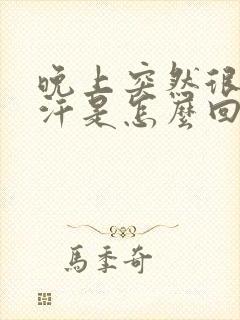 晚上突然很
汗是怎麼回
馬季奇